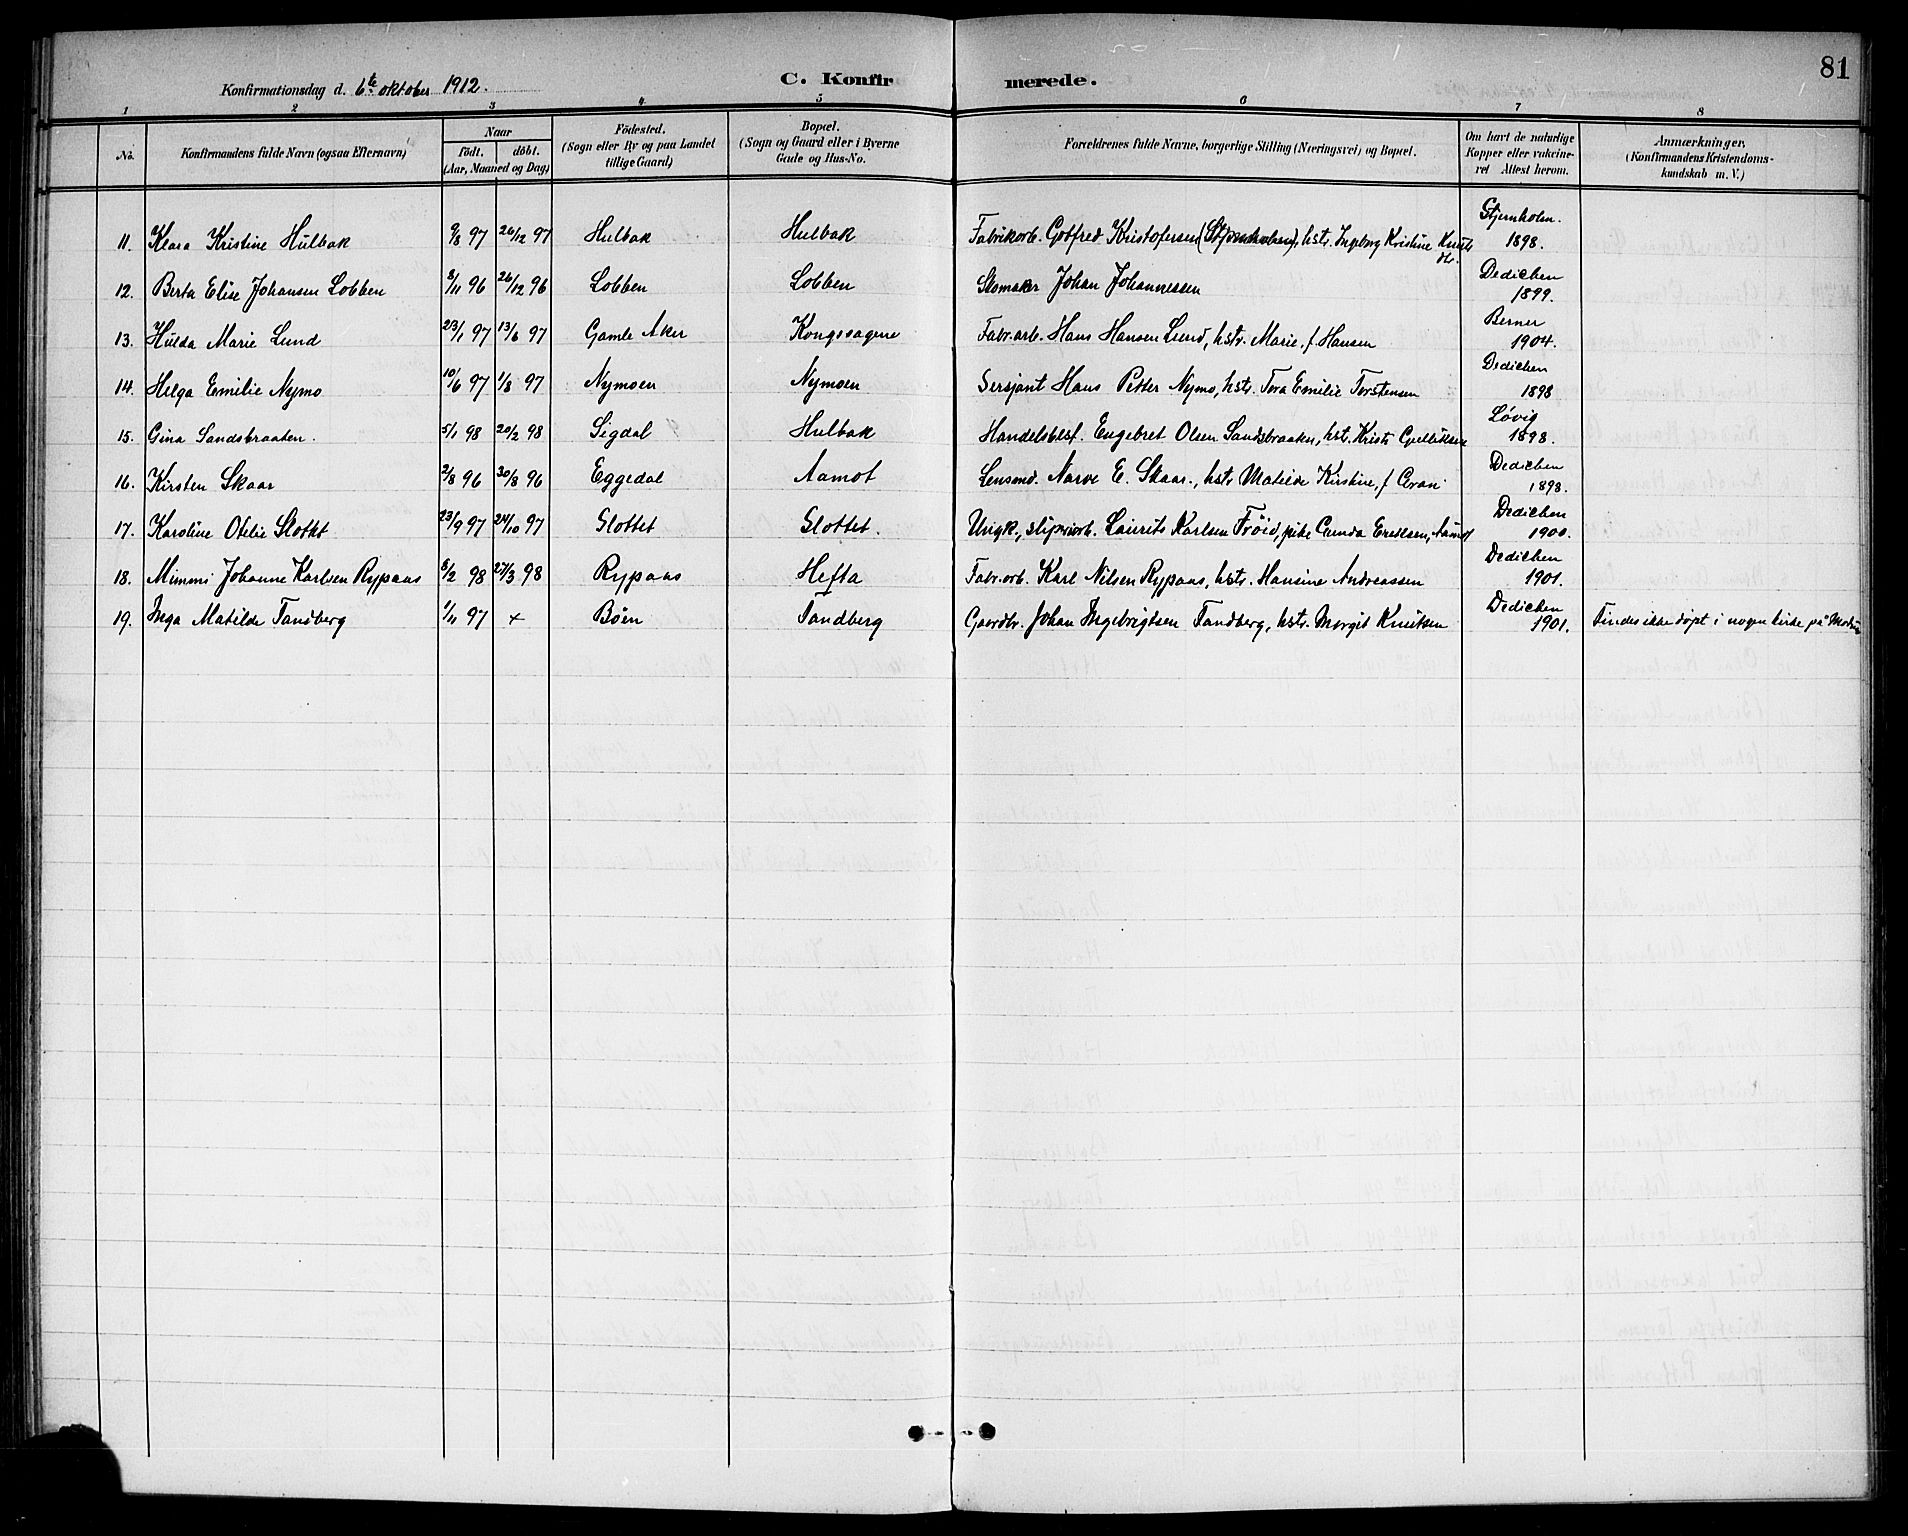 81
Konfirmationsdag d. 6te oktober 1912.
C. Konfirmerede.
1 2 3 4 5 6 7 8
No.
Konfirmandens fulde Navn (ogsaa Efternavn)
Naar
födt. döbt.
(Aar, Maaned og Dag)
Födested.
(Sogn eller By og paa Landet
tillige Gaard)
Bopæl.
(Sogn og Gaard eller i Byerne
Gade og Hus-No.
Forældrenes fulde Navne, borgerlige Stilling (Næringsvei) og Bopæl.
Om havt de naturlige
Kopper eller vakcine-
ret Attest herom.
Anmærkninger,
(Konfirmandens Kristendoms-
kundskab m. V.)
11. Klara Kristine Hulbak 9/8 97 26/12 97 Hulbak Hulbak Fabrikarb. Gotfred Kristofersen (Stjernholm), hstr. Ingeborg Kristine Knuts dtr. Stjernholm. 1898.
12. Berta Elise Johansen Lobben 8/11 96 26/12 96 Lobben Lobben Skomaker Johan Johannessen Dedichen 1899.
13. Hulda Marie Lund 23/1 97 13/6 97 Gamle Aker Kongssagene Fabr.arb. Hans Hansen Lund, hstr. Marie, f. Hansen Berner 1904.
14. Helga Emilie Nymo 10/6 97 1/8 97 Nymoen Nymoen Sersjant Hans Petter Nymo, hstr. Tora Emilie Torstensen Dedichen 1898
15. Gina Sandsbraaten. 5/1 98 20/2 98 Sigdal Hulbak Handelsbest. Engebret Olsen Sandsbraaten, hst. Kristi Gulliksen Løvig 1898.
16. Kirsten Skaar 2/8 96 30/8 96 Eggedal Aamot Lensmd. Narve E. Skaar, hstr. Matilde Kirstine, f. Dedichen 1898.
17. Karoline Otilie Slottet 23/9 97 24/10 97 Slottet Slottet. Ungk., sliperiarb. Laurits Karlsen Frøid, pike Gunda Evensen, Aamot Dedichen 1900.
18. Mimmi Johanne Karlsen Rypaas 8/2 98 27/3 98 Rypaas Hefta Fabr.arb. Karl Nilsen Rypaas, hstr. Hansine Andreassen Dedichen 1901.
19. Inga Matilde Tandberg 1/11 97 + Böen Tandberg Gaardbr. Johan Ingebrigtsen Tandberg, hstr. Margit Knutsen Dedichen 1901. Findes ikke døpt i nogen kirke på Modum